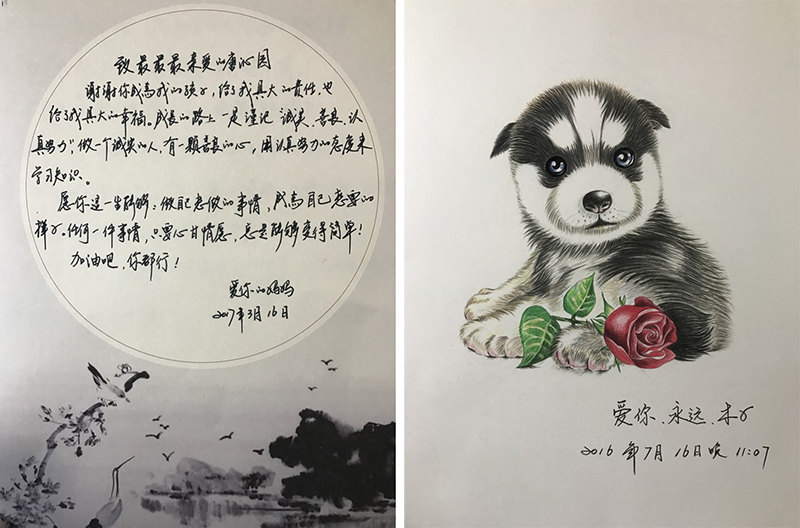 致最最最亲爱的唐沁园
谢谢你成为我的孩子，给了我莫大的责任，也
给了我莫大的幸福。成长的路上一定谨记"诚实、善良、认
真努力"，做一个诚实的人，有一颗善良的心，用认真努力的态度来
学习知识。
愿你这一生能够：做自己想做的事情，成为自己想要的
样子。任何一件事情，只要心甘情愿，总是能够变得简单！
加油吧，你都行！
爱你的妈妈
2017年3月16日
爱你、永远、木子
2016年7月16日晚 11:07